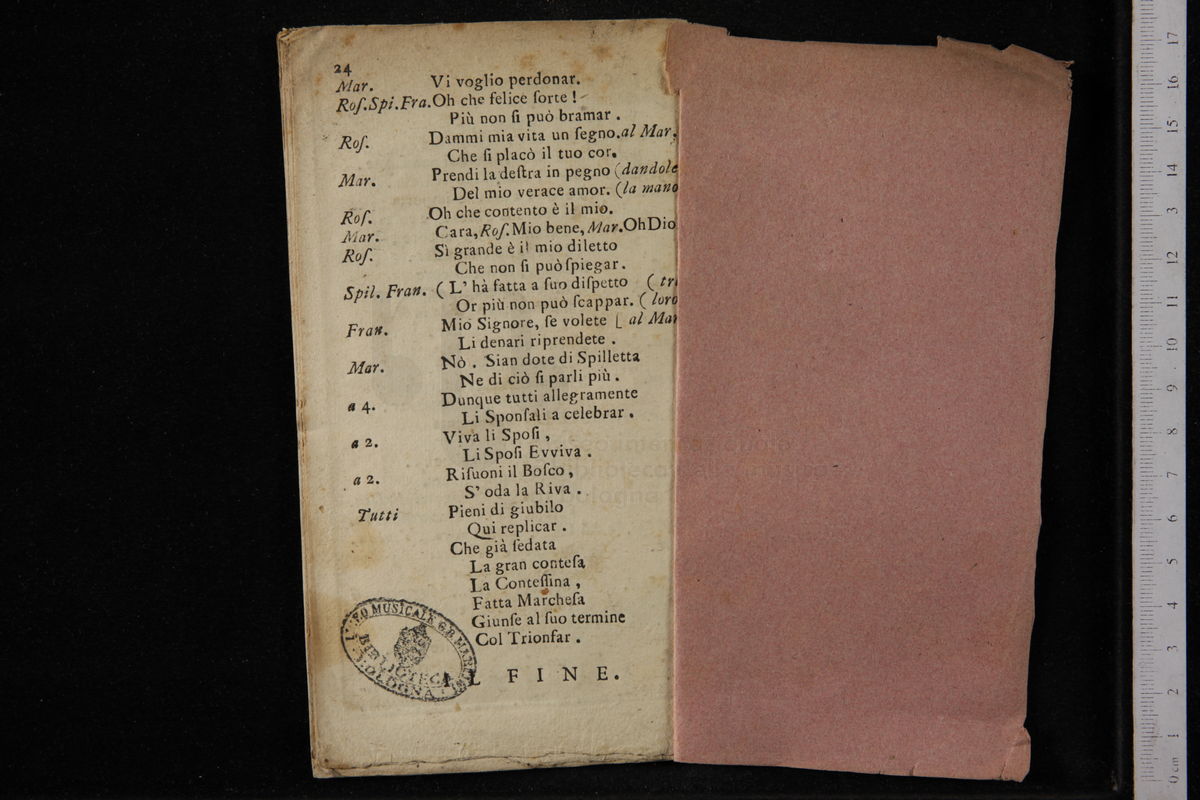 24
Mar. Vi voglio perdonar.
Roſ.Spi.Fra. Oh che felice ſorte !
Più non ſi può bramar .
Roſ. Dammi mia vita un ſegno. al Mar.
Che ſi placò il tuo cor.
Mar. Prendi la deſtra in pegno (dandole
Del mio verace amor. (la mano
Roſ. Oh che contento è il mio.
Mar. Cara, Roſ. Mio bene, Mar. Oh Dio
Roſ. Sì grande è il mio diletto
Che non ſi può ſpiegar .
Spil. Fran. ( L' hà fatta a ſuo diſpetto ( tr
Or più non può ſcappar. ( loro
Fran. Mio Signore, ſe volete [ al Mar
Li denari riprendete .
Mar. Nò . Sian dote di Spilletta
Ne di ciò ſi parli più .
a 4. Dunque tutti allegramente
Li Sponſali a celebrar .
a 2. Viva li Spoſi ,
Li Spoſi Evviva .
a 2. Riſuoni il Boſco ,
S' oda la Riva .
Tutti Pieni di giubilo
Qui replicar .
Che già ſedata
La gran conteſa
La Conteſſina ,
Fatta Marcheſa
Giunſe al ſuo termine
Col Trionfar .
IL FINE.
LICEO MUSICALE
BIBLIOTECA
BOLOGNA
0 cm 1 2 3 4 5 6 7 8 9 10 11 12 3 14 15 16 17